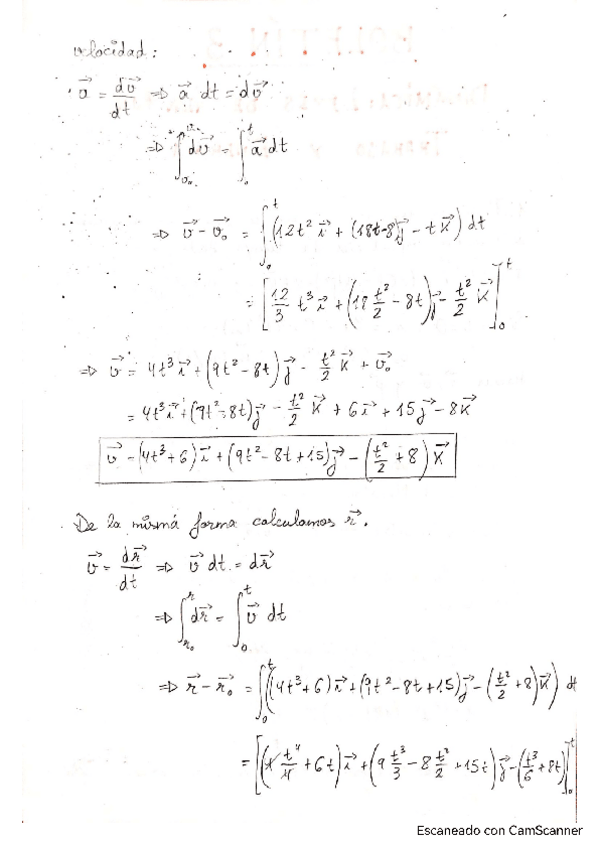 velocidad:
a⃗ = dv⃗/dt ⇒ a⃗ dt = dv⃗
⇒ ∫_{v₀}^{v} dv⃗ = ∫_0^t a⃗ dt
⇒ v⃗ - v⃗₀ = ∫_0^t (12t² i⃗ + (18t-8)j⃗ - t k⃗) dt
= [12/3 t³ i⃗ + (18 t²/2 - 8t)j⃗ - t²/2 k⃗]_0^t
⇒ v⃗ = 4t³ i⃗ + (9t² - 8t) j⃗ - t²/2 k⃗ + v⃗₀
= 4t³ i⃗ + (9t² - 8t) j⃗ - t²/2 k⃗ + 6 i⃗ + 15 j⃗ - 8 k⃗
v⃗ = (4t³ + 6) i⃗ + (9t² - 8t + 15) j⃗ - (t²/2 + 8) k⃗
De la misma forma calculamos r⃗.
v⃗ = dr⃗/dt ⇒ v⃗ dt = dr⃗
⇒ ∫_{r₀}^{r} dr⃗ = ∫_0^t v⃗ dt
⇒ r⃗ - r⃗₀ = ∫_0^t ((4t³ + 6) i⃗ + (9t² - 8t + 15) j⃗ - (t²/2 + 8) k⃗) dt
= [(4 t⁴/4 + 6t) i⃗ + (9 t³/3 - 8 t²/2 + 15t) j⃗ - (t³/6 + 8t)]_0^t
Escaneado con CamScanner